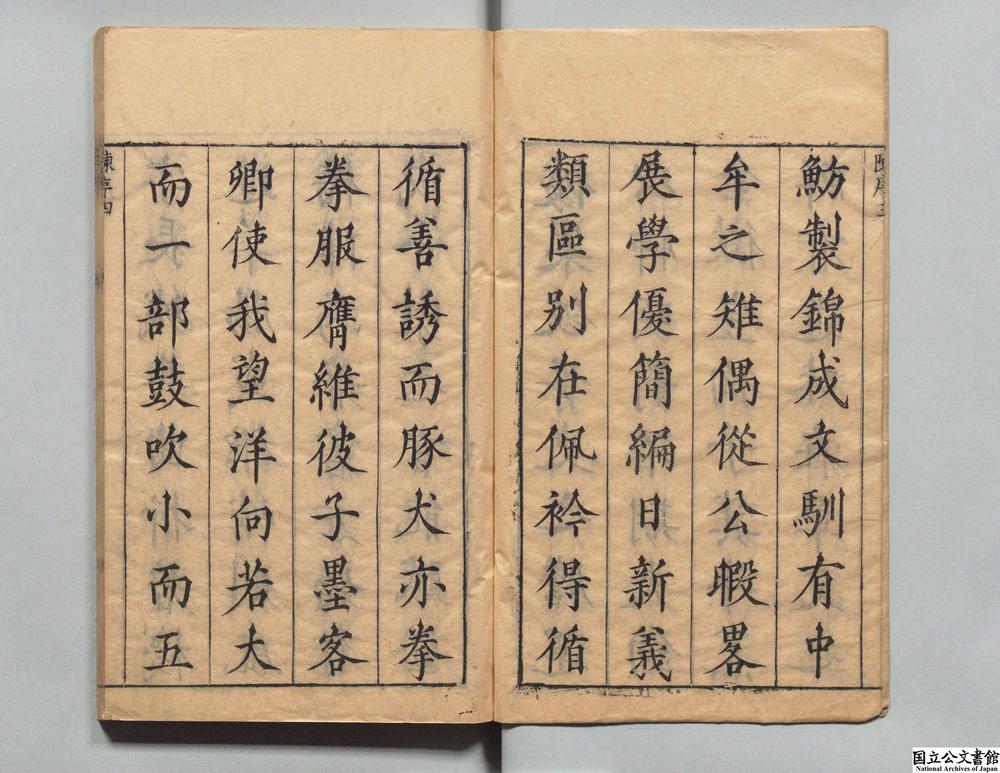 魴製錦成文馴有中
牟之雉偶從公暇畧
展學優簡編日新義
類區別在佩衿得循
循善誘而豚犬亦拳
拳服膺維彼子墨客
卿使我望洋向若大
而一部鼓吹小而五
陳序四
国立公文書館
National Archives of Japan